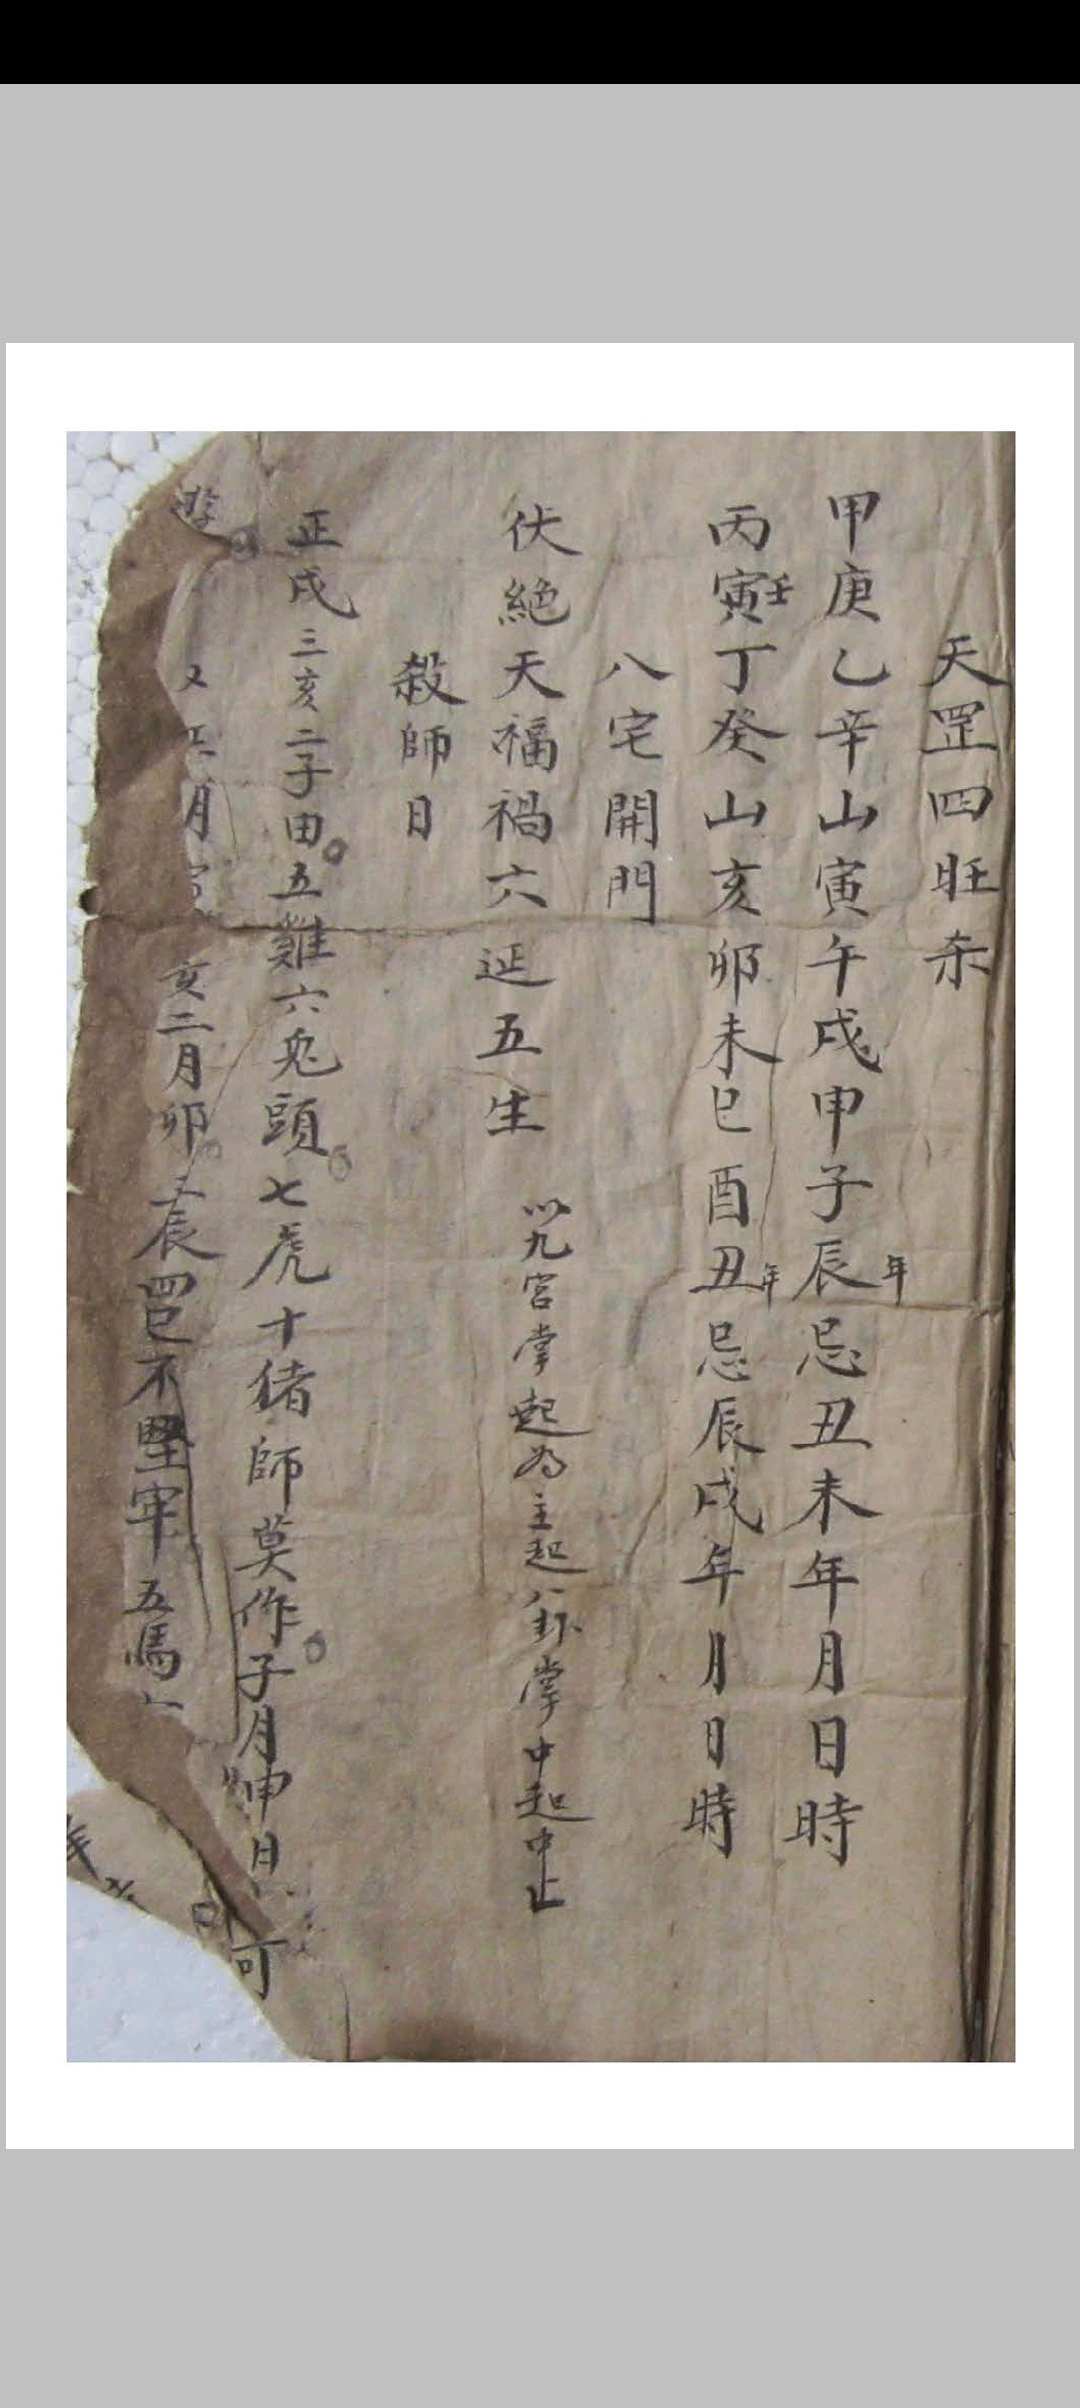 天罡四旺杀
甲庚乙辛山寅午戌申子辰年忌丑未年月日時
丙寅壬丁癸山亥卯未巳酉丑年忌辰戌年月日時
八宅開門
伏絕天福禍六延五生 以九宮掌起為主起八卦掌中起中止
殺師日
正戌三亥二子田五雞六兎頭七虎十猪師莫作子月申日可
游
又正月 亥二月卯三辰四巳不堅牢五馬
年